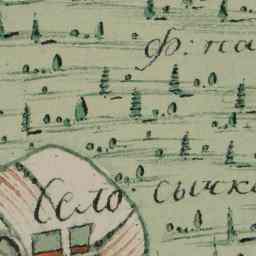 ф: па
село: сычк